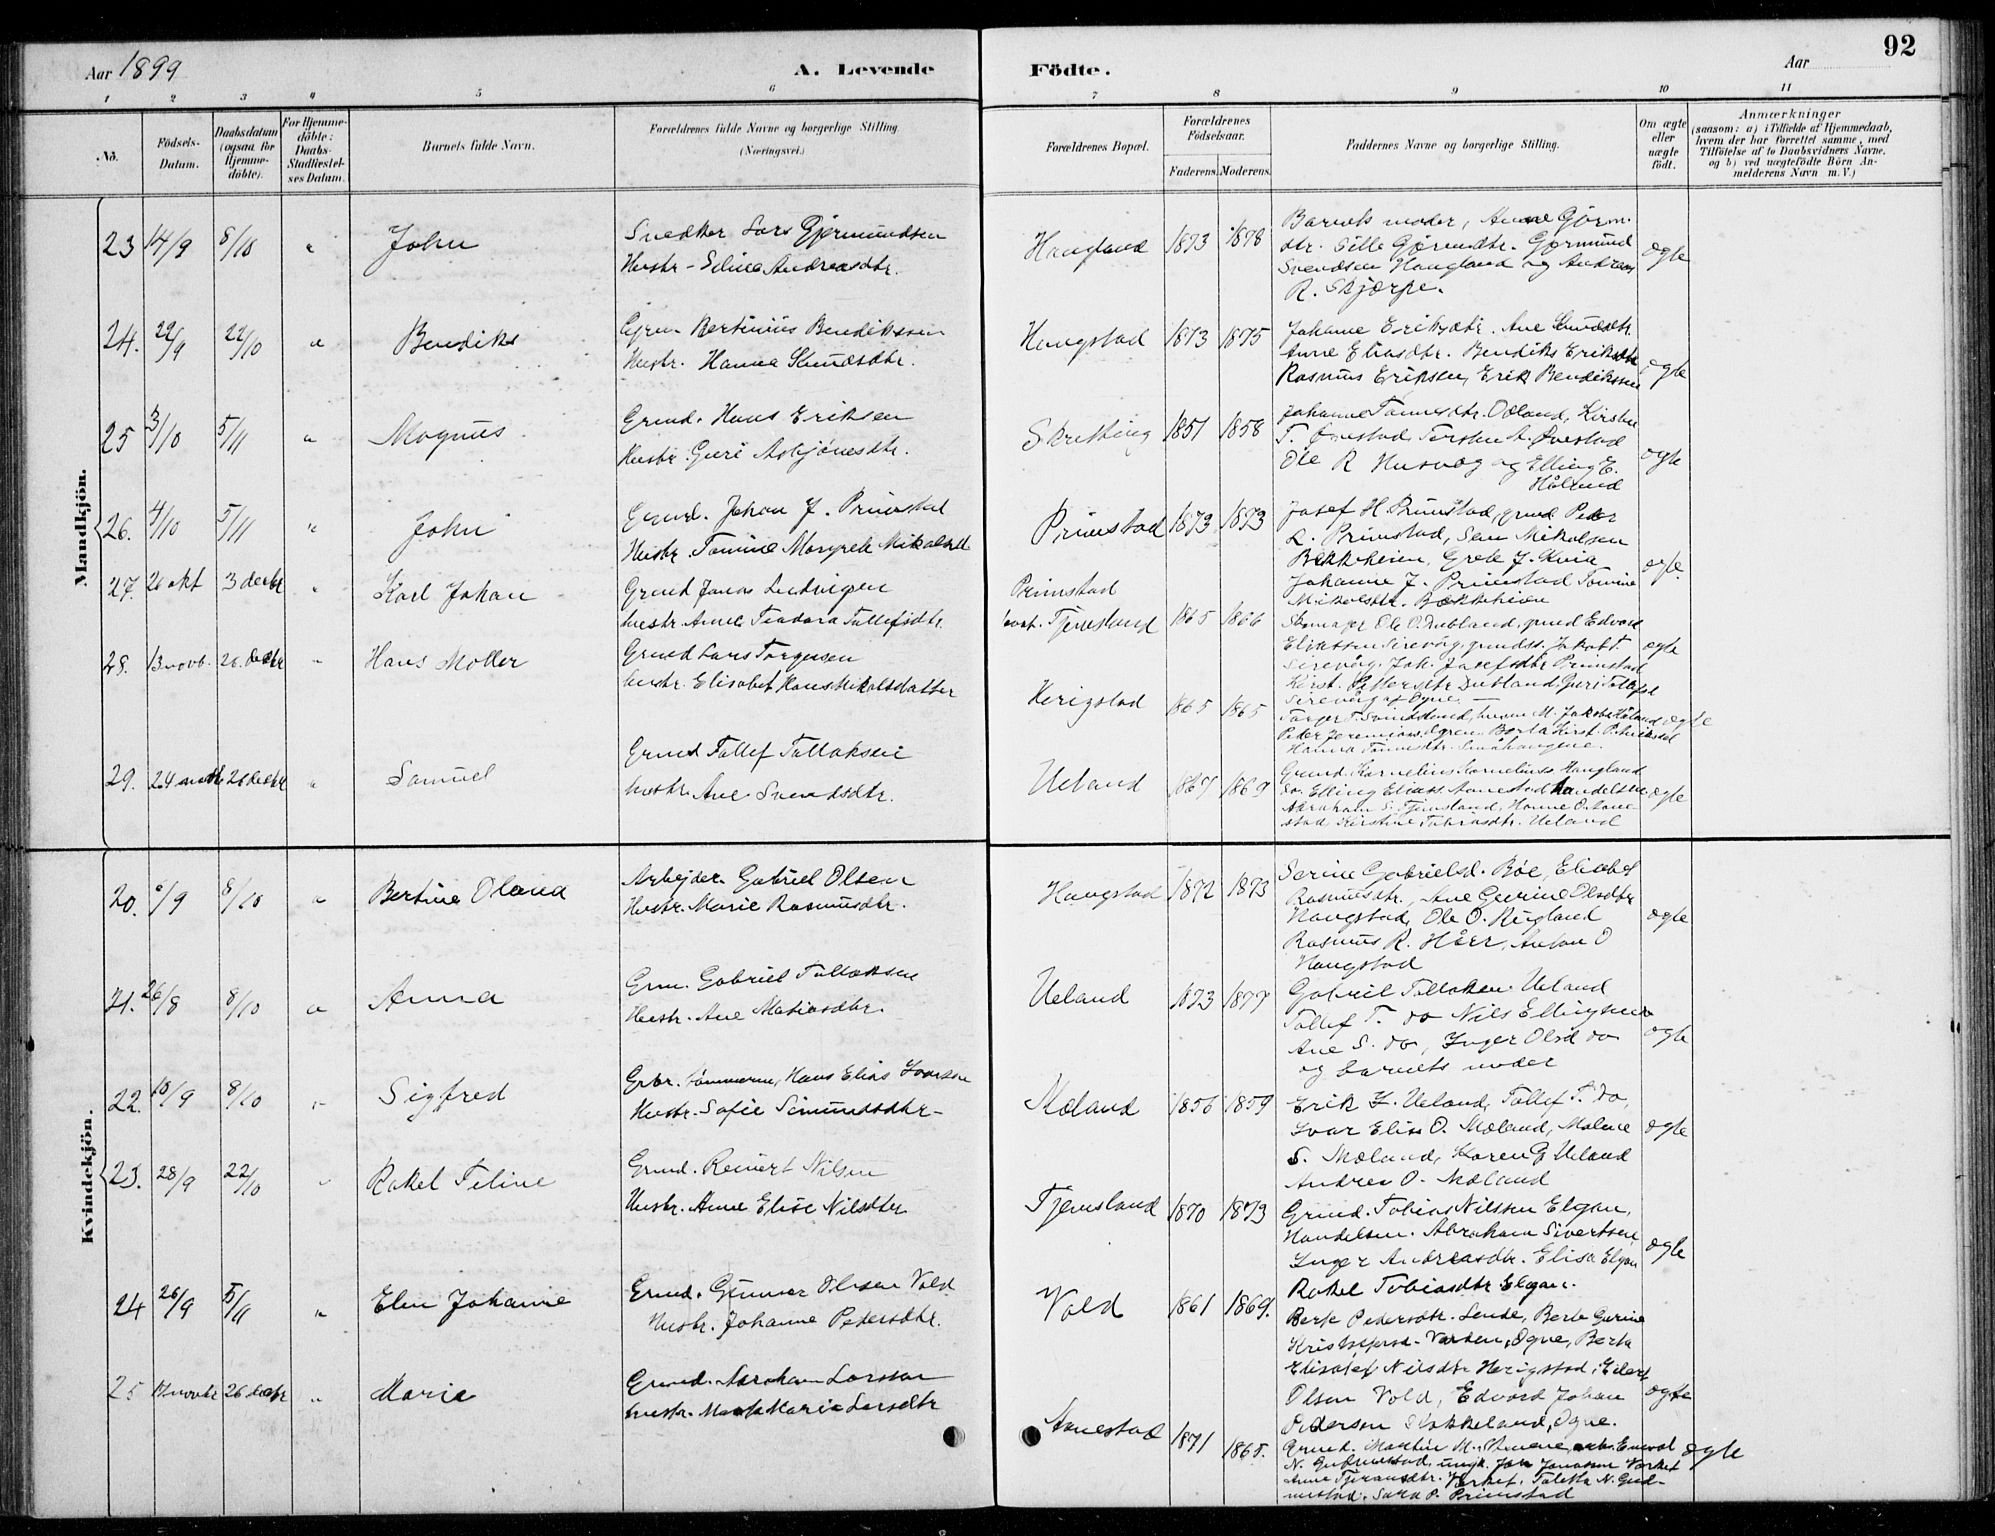 Aar 1899
A. Levende
Födte.
Aar
92
1 2 3 4 5 6 7 8 9 10 11
No.
Födsels-Datum.
Daabsdatum (ogsaa for Hjemme-döbte).
For Hjemme-döbte: Daabs-Stadfæstel-ses Datum.
Barnets fulde Navn.
Forældrenes fulde Navne og borgerlige Stilling. (Næringsvei.)
Forældrenes Bopæl.
Forældrenes Födselsaar.
Faderens. Moderens.
Faddernes Navne og borgerlige Stilling.
Om ægte eller uægte födt.
Anmærkninger
(saasom: a) i Tilfælde af Hjemmedaab,
hvem der har forrettet samme, med
Tilföielse af to Daabsvidners Navne,
og b) ved uægtefödte Börn An-
melderens Navn m. V.)
Mandkjön.
23 14/9 8/10 " John
Snedker Lars Gjermundsen
Hustr - Seline Andreasdtr.
Haugland 1873 1878
Barnets moder, Anne Gjerm.
dtr. Sille Gjermdtr. Gjermund
Svendsen Haugland og Andreas
R. Skjærpe.
ægte
24. 29/9 22/10 " Bendiks
Grm. Bertinius Bendikssen
Hustr. Hanna Knudsdtr.
Haugstad 1873 1875
Johanne Eriksdtr. Ane Knudsdtr.
Anne Eliasdtr. Bendiks Eriksen
Rasmus Eriksen, Erik Bendikssen
ægte
25 3/10 5/11 " Magnus
Grmd. Hans Eriksen
Hustr. Guri Asbjönsdtr.
Skretting 1851 1858
Johanne Tønnesdtr. Odland, Kirstine
T. Ovestad Torsten A. Ovestad
Ole R Husvæg og Elling E.
Håland
ægte
26. 4/10 5/11 " John
Grmd. Johan J. Primstad
Hustr. Tomine Margrete Mikalsdtr
Primstad 1873 1873
Josef H Primstad, grmd Peder
L. Primstad, Sem Mikalsen
Bekkheien, Grete J. Kvia
Johanne J. Primstad Tomine
Mikalsdtr. Bækkheien
ægte
27. 20 okt 3 decbr " Karl Johan
Grmd Jonas Ludvigsen
hustr. Anne Teodora Tollefsdtr.
Primstad
Tjemsland 1865 1866
Skomager Ole O. Dubland, grmd Edvard
Eliassen Sirevåg, grmdss. Jakob T.
Sirevåg. Joh. Josefsdtr Primstad
Kirst. Pettersdtr Dubland, Guri Tollefsd
Sirevåg af Ogne
ægte
28. 13 novb. 26. decbr " Hans Møller
Grmd Lars Torgersen
hustr. Elisabet Hans Mikalsdatter
Herigstad 1865 1865
Torger T. Svindland,
Peder Jeremiass. Ogren. Berta Kirst.
Hanna Tønnesdtr.
ægte
29. 24 novbr 26 decbr " Samuel
Grmd Tollef Tollaksen
hustr. Ane Svendsdtr.
Ueland 1867 1869
Grmd. Kornelius Korneliuss Haugland
do. Elling Eliass Aanestad handelsm
Abraham S. Tjemsland, Hanne O. Aane
stad Kirstine Tobiasdtr. Ueland
ægte
Kvindekjön.
20. 6/9 8/10 " Bertine Olava
Arbejder Gabriel Olsen
Hustr. Marie Rasmusdtr.
Haugstad 1872 1873
Serine Gabrielsd. Bøe, Elisabet
Rasmusdtr., Ane Gurine Olsdtr
Haugstad, Ole O. Ringland
Rasmus R. Hårr, Anton O
Haugstad
ægte
21. 26/8 8/10 " Anna
Grm. Gabriel Tollaksen
Hustr. Ane Matiasdtr.
Ueland 1873 1877
Gabriel Tollaksen Ueland
Tollef T. do Nils Ellingsen
Ane S. do, Inger Olsd do
og barnets moder
ægte
22. 10/9 8/10 " Sigfred
Grbr. tømmerm, Hans Elias Ivarsen
Hustr. Sofie Simonsdtr -
Moland 1856 1859
Erik T. Ueland, Tollef T. do,
Ivar Elias O. Moland, Malene
S. Moland, Karen G Ueland
Andrea O. Moland
ægte
23. 28/9 22/10 " Rakel Teline
Grmd. Reinert Nilsen
Hustr. Anne Elise Nilsdtr
Tjemsland 1870 1873
Grmd. Tobias Nilssen Elgan,
Handelsm. Abraham Sivertsen
Inger Andreasdtr. Elisa Elgan
Rakel Tobiasdtr Elgan.
ægte
24 26/9 5/11 " Elen Johanne
Grmd. Gunnar Olsen Vold
Hustr. Johanne Petersdtr.
Vold 1861 1869.
Berte Pedersdtr. Lende, Berte Gurine
Varden, Ogne, Berta
Elisabet Nilsdtr Herigstad, Eilert
Olsen Vold, Edvard Johan
Pedersen Stokkeland, Ogne.
ægte
25 17 novbr 26 decbr " Marie
Grmd. Abraham Larsson
hustr. Marta Marie Larsdtr
Aanestad 1871 1865.
Grmd. Martin M. Stenene,
N. Gudmestad, ungk. Jon Jonassen Varhet
Anne Tjeransdtr. Varhet, Taletta N. Gud-
mestad. Sara P. Primstad
ægte